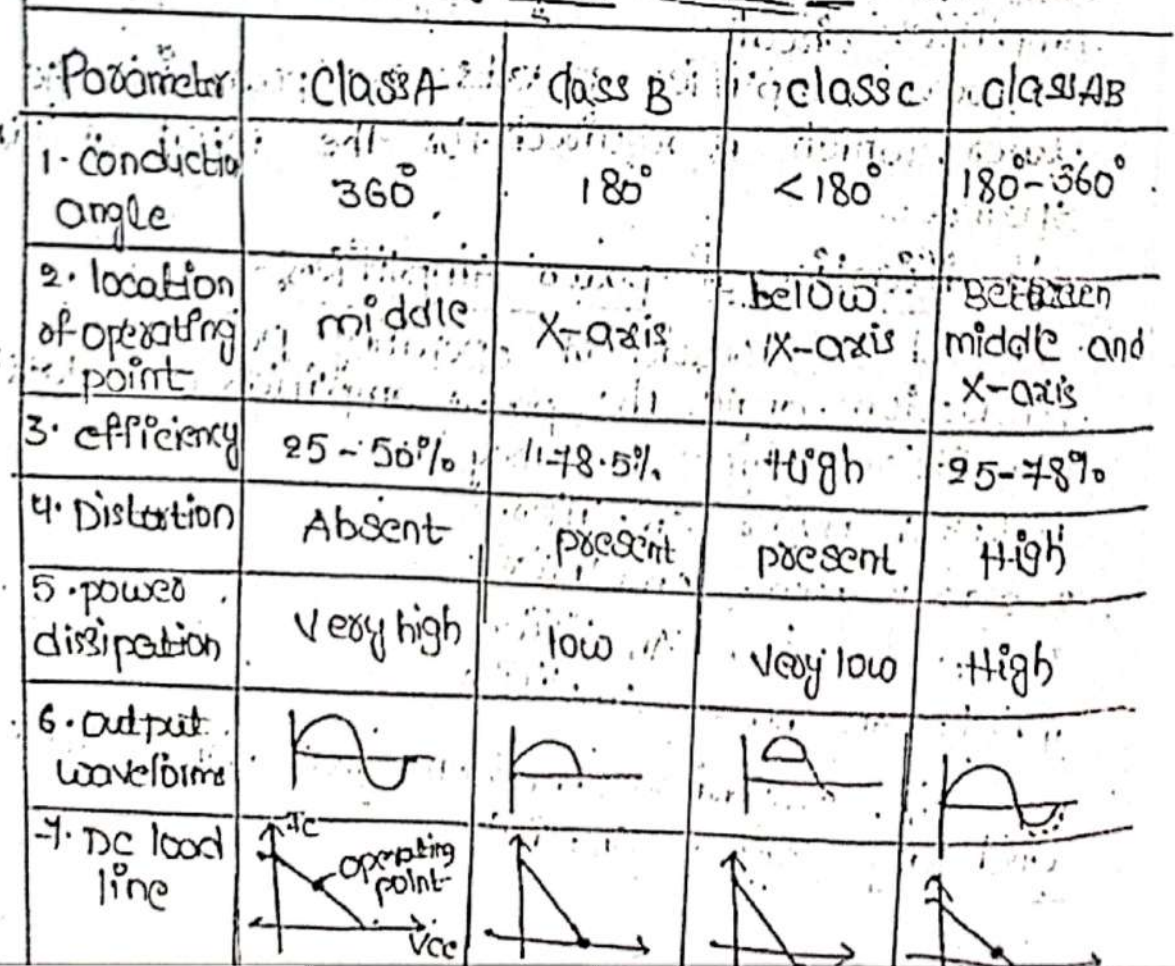 Parameter
class A
class B
class c
class AB
1. conductio
angle
360°
180°
<180°
180°-360°
2. location
of operating
point
middle
X-axis
below
X-axis
Between
middle and
X-axis
3. efficiency
25-50%
78.5%
High
25-78%
4. Distortion
Absent
present
present
High
5. power
dissipation
Very high
low
very low
High
6. output
waveforms
7. DC load
line
Ic
operating
point
Vcc